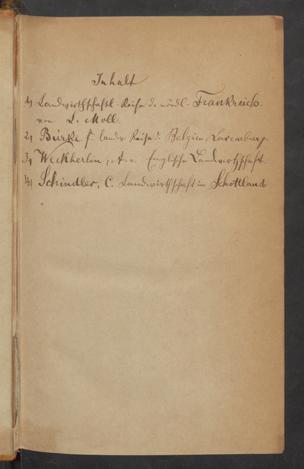 Inhalt
1) Landwirthschaftl. Reise d. nördl. Frankreich
von L. Moll
2) f. landw. Reise d. Belgien, Luxemburg
3) Weckherlin, A. v. Englische Landwirthschaft
4) Schindler, C. Landwirthschaft in Schottland